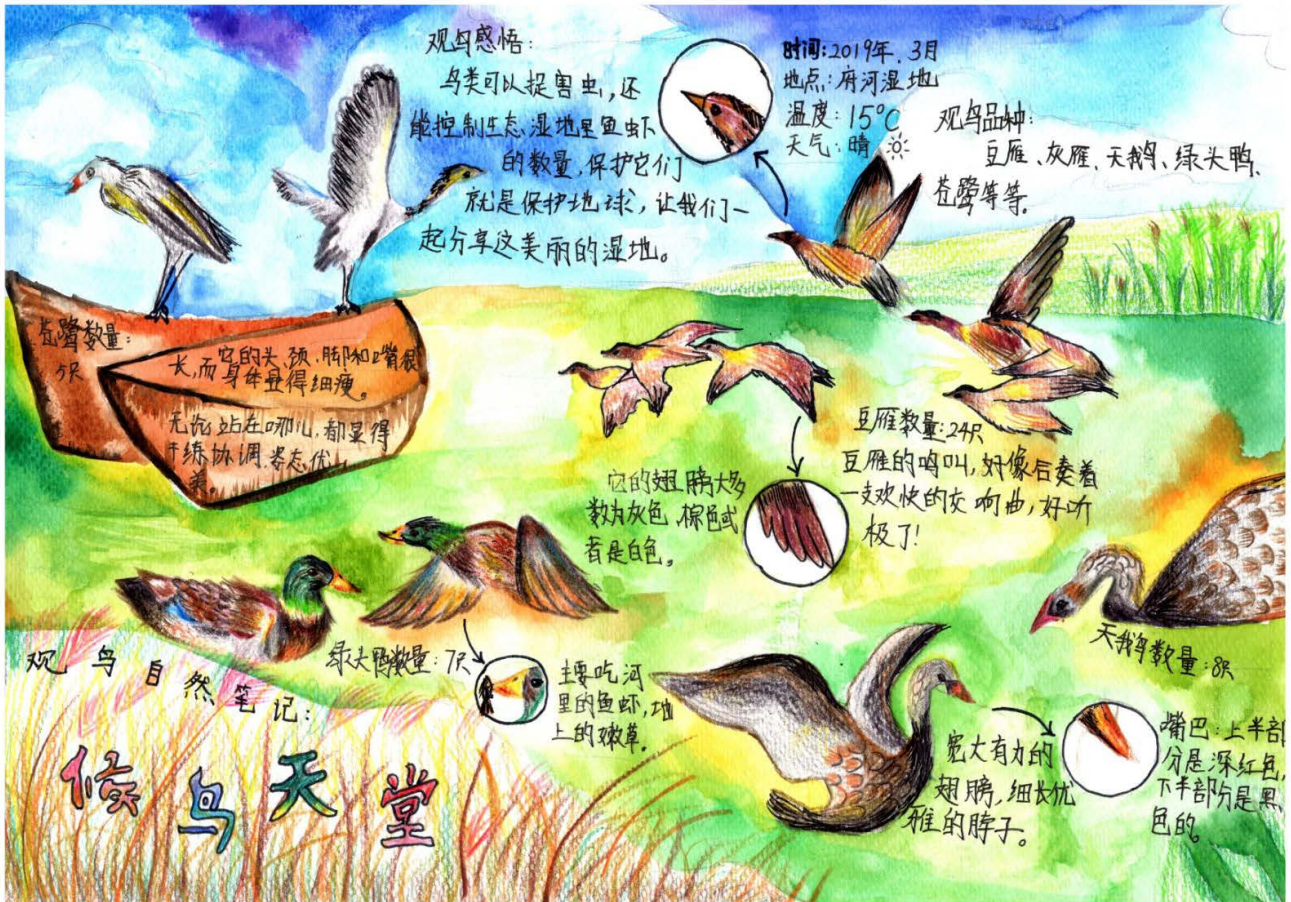 观鸟感悟：
鸟类可以捉害虫，还
能控制生态湿地里鱼虾
的数量，保护它们
就是保护地球，让我们一
起分享这美丽的湿地。
时间：2019年.3月
地点：府河湿地
温度：15℃
天气：晴
观鸟品种：
豆雁、灰雁、天鹅、绿头鸭、
苍鹭等等。
苍鹭数量：
5只
它的头、颈、脚和嘴很
长，而身体显得细瘦。
无论站在哪儿，都显得
干练协调，姿态优
美。
豆雁数量：24只
豆雁的鸣叫，好像后奏着
一支欢快的交响曲，好听
极了！
它的翅膀大多
数为灰色、棕色或
者是白色。
绿头鸭数量：7只
主要吃河
里的鱼虾，地
上的嫩草。
天鹅数量：8只
宽大有力的
翅膀，细长优
雅的脖子。
嘴巴：上半部
分是深红色，
下半部分是黑
色的。
观鸟自然笔记：
候鸟天堂